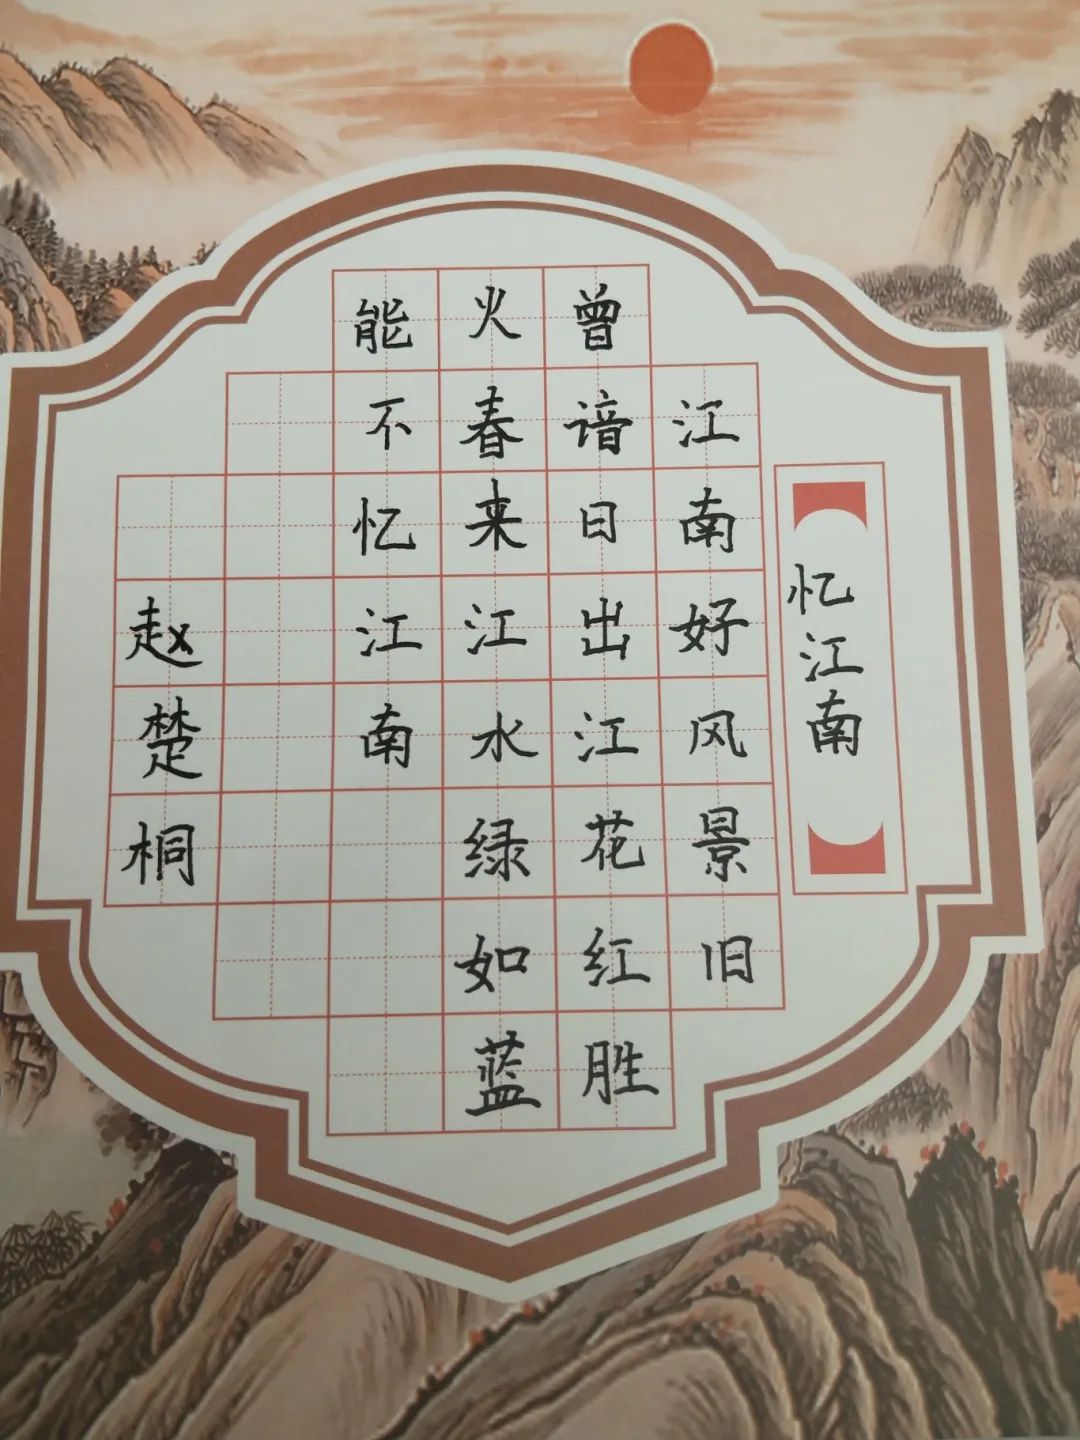 忆江南
江南好风景旧
曾谙日出江花红胜
火春来江水绿如蓝
能不忆江南
赵楚桐